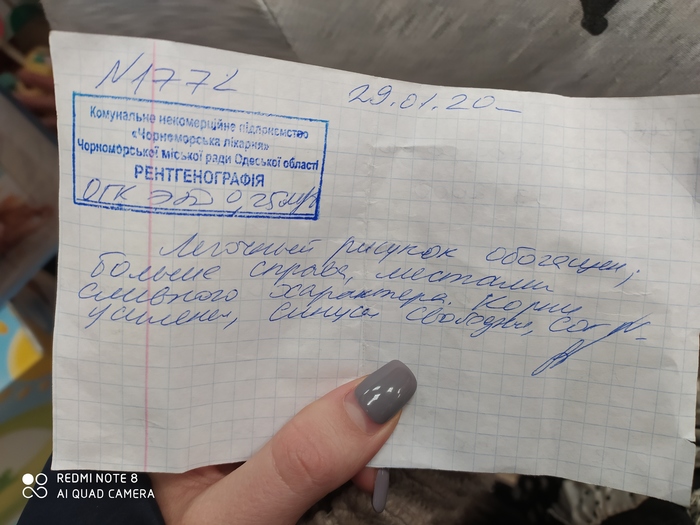 N 177L
29.01.20
Комунальне некомерційне підприємство
«Чорноморська лікарня»
Чорноморської міської ради Одеської області
РЕНТГЕНОГРАФІЯ
ОГК ЭЭД 0,25
Легочный рисунок обогащен,
больше справа, местами
сливного характера. Корни
усилены, синусы свободны, cor N
REDMI NOTE 8
AI QUAD CAMERA